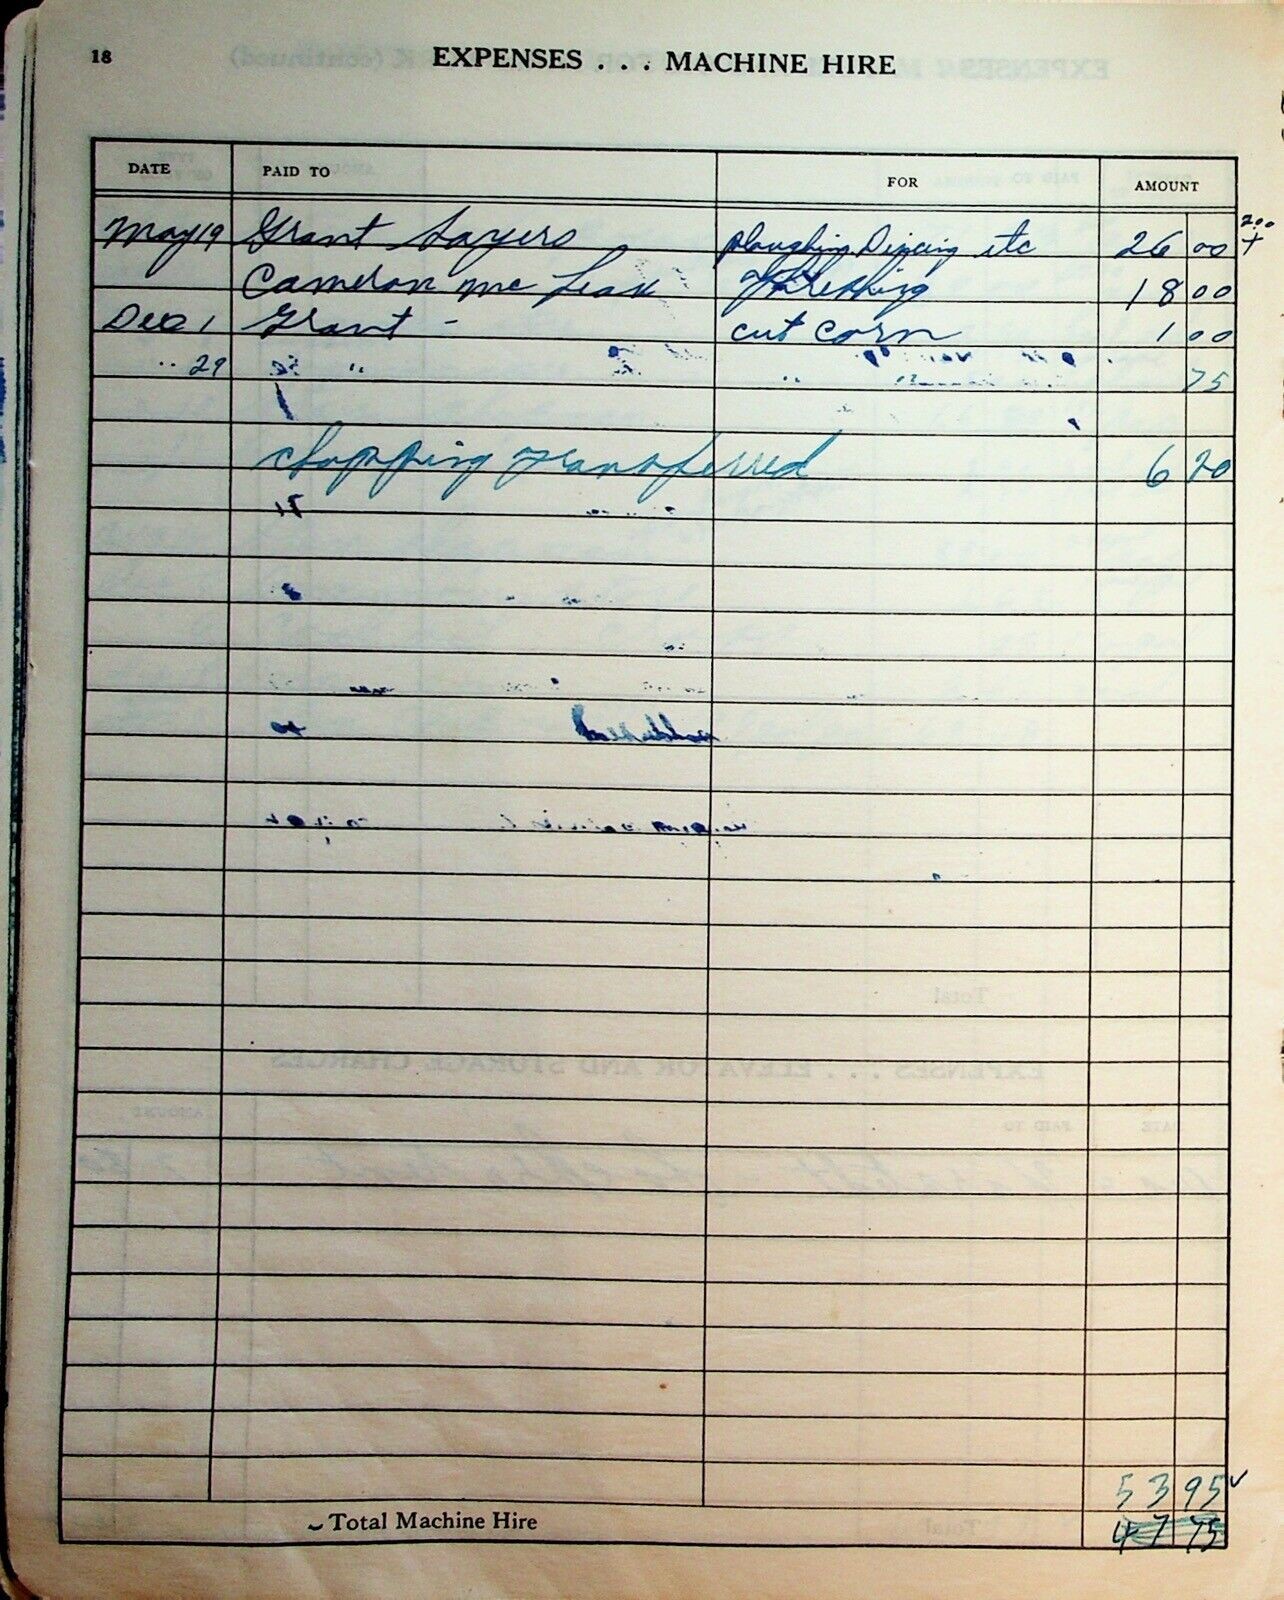 18
EXPENSES . . . MACHINE HIRE
DATE PAID TO FOR AMOUNT
May 19 Grant Sayers ploughing Discing etc 26 00 2.00 +
Cameron Mc Lean Threshing 18 00
Dec 1 Grant - cut corn 1 00
" 29 " " 75
Chopping transferred 6 20
53 95 ✓
Total Machine Hire 47 75